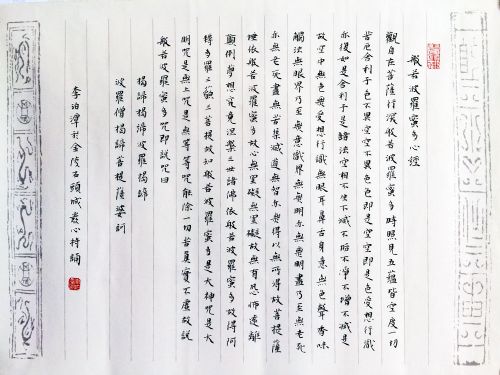 般若波羅蜜多心經
觀自在菩薩行深般若波羅蜜多時照見五蘊皆空度一切
苦厄舍利子色不異空空不異色色即是空空即是色受想行識
亦復如是舍利子是諸法空相不生不滅不垢不淨不增不減是
故空中無色無受想行識無眼耳鼻舌身意無色聲香味
觸法無眼界乃至無意識界無無明亦無無明盡乃至無老死
亦無老死盡無苦集滅道無智亦無得以無所得故菩提薩
埵依般若波羅蜜多故心無罣礙無罣礙故無有恐怖遠離
顛倒夢想究竟涅槃三世諸佛依般若波羅蜜多故得阿
耨多羅三藐三菩提故知般若波羅蜜多是大神咒是大
明咒是無上咒是無等等咒能除一切苦真實不虛故說
般若波羅蜜多咒即說咒曰
揭諦揭諦波羅揭諦
波羅僧揭諦菩提薩婆訶
李泊潭於金陵石頭城發心持誦